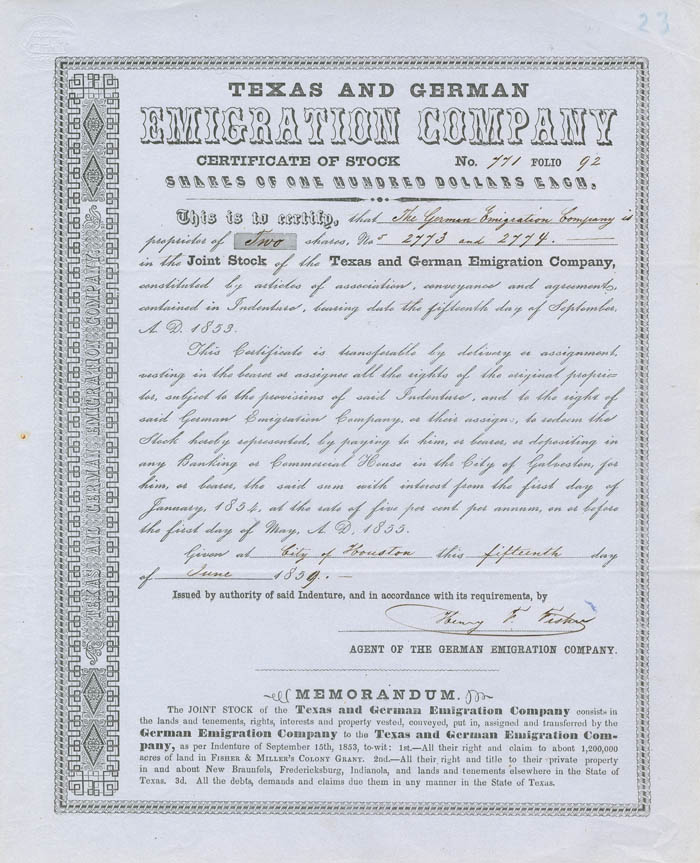 23
TEXAS AND GERMAN
EMIGRATION COMPANY
CERTIFICATE OF STOCK No. 771 FOLIO 92
SHARES OF ONE HUNDRED DOLLARS EACH,
This is to certify, that The German Emigration Company is
proprietor of Two shares, Nos 2773 and 2774.
in the Joint Stock of the Texas and German Emigration Company,
constituted by articles of association, conveyance and agreement,
contained in Indenture, bearing date the fifteenth day of September,
A. D. 1853.
This Certificate is transferable by delivery or assignment,
vesting in the bearer or assignee all the rights of the original proprie-
tor, subject to the provisions of said Indenture, and to the right of
said German Emigration Company, or their assigns, to redeem the
Stock hereby represented, by paying to him, or bearer, or depositing in
any Banking or Commercial House in the City of Galveston, for
him, or bearer, the said sum with interest from the first day of
January, 1854, at the rate of five per cent. per annum, on or before
the first day of May, A. D. 1855.
Given at City of Houston this fifteenth day
of June 1859.
Issued by authority of said Indenture, and in accordance with its requirements, by
Henry F. Fisher
AGENT OF THE GERMAN EMIGRATION COMPANY.
MEMORANDUM.
The JOINT STOCK of the Texas and German Emigration Company consists in
the lands and tenements, rights, interests and property vested, conveyed, put in, assigned and transferred by the
German Emigration Company to the Texas and German Emigration Com-
pany, as per Indenture of September 15th, 1853, to-wit: 1st.—All their right and claim to about 1,200,000
acres of land in FISHER & MILLER'S COLONY GRANT. 2nd.—All their right and title to their private property
in and about New Braunfels, Fredericksburg, Indianola, and lands and tenements elsewhere in the State of
Texas. 3d. All the debts, demands and claims due them in any manner in the State of Texas.
TEXAS AND GERMAN EMIGRATION COMPANY